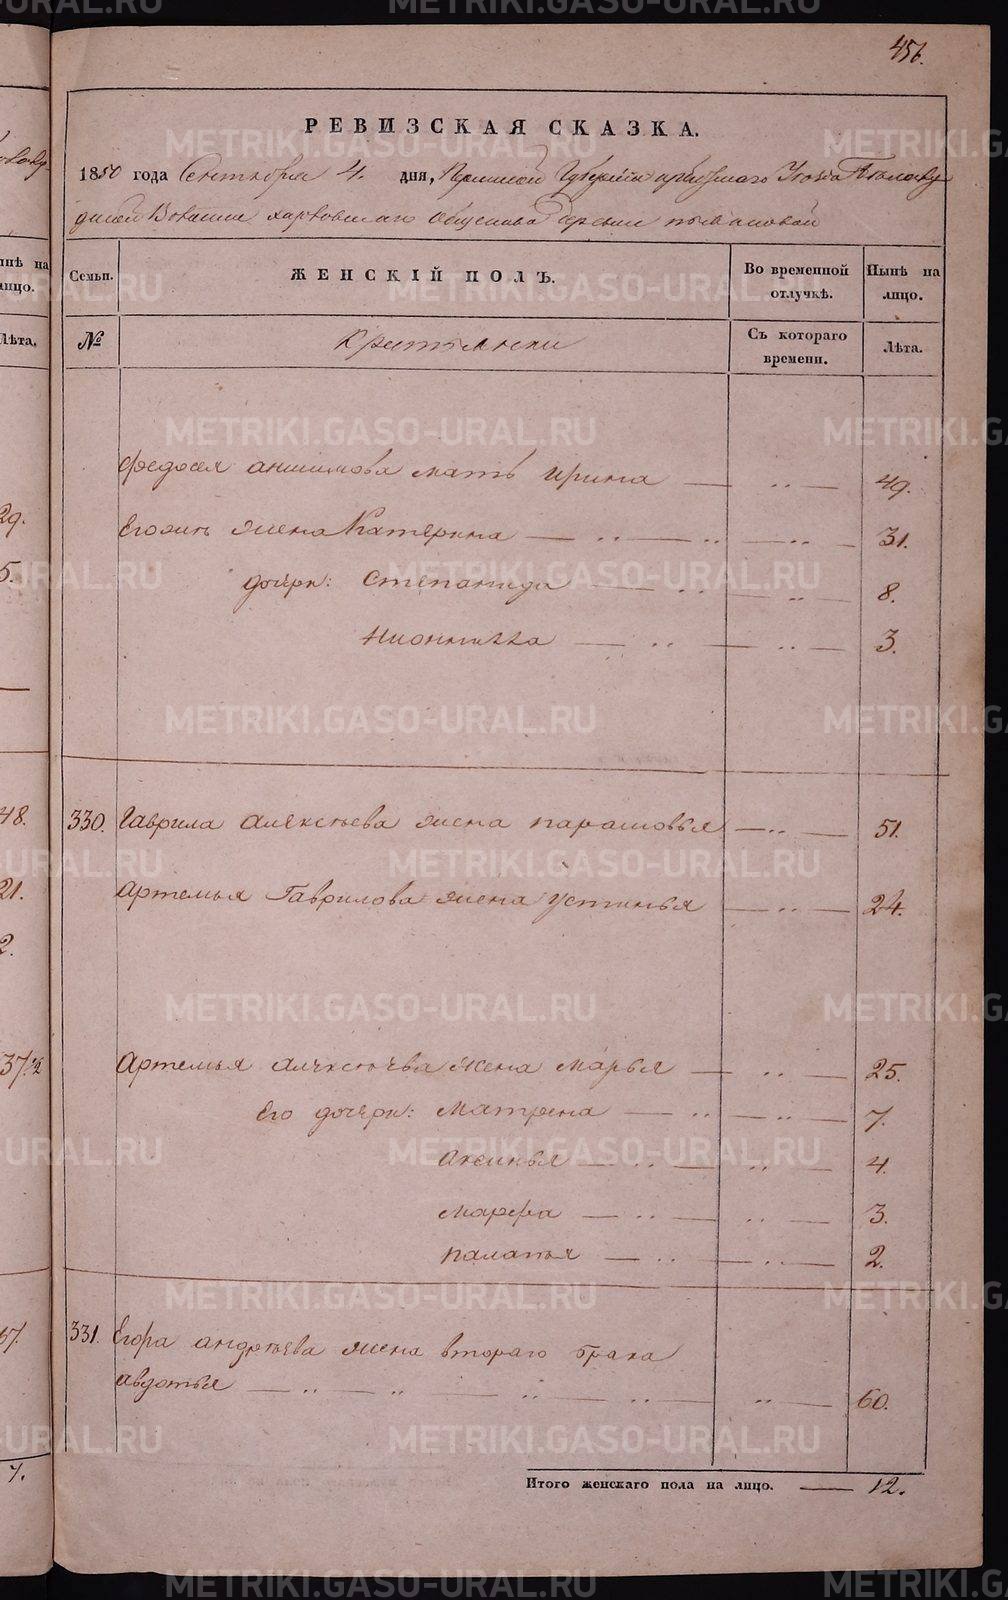 456.
РЕВИЗСКАЯ СКАЗКА.
1850 года Сентября 4. дня, Пермской Губернии Ирбитскаго Уезда
волости харловскаго общества деревни
Семьи. ЖЕНСКІЙ ПОЛЪ. Во временной отлучкѣ. Нынѣ на лицо.
№ Крестьянски Съ котораго времени. Лѣта.
Федосея анисимова мать Ирина — 49.
Егожъ жена Катерина — 31.
дочери: Степанида — 8.
3.
330. Гаврила алексѣева жена парасковья — 51.
Артемья Гаврилова жена устинья — 24.
Артемья алексѣева жена Марья — 25.
Его дочери: Матрена — 7.
аксинья — 4.
марфа — 3.
палагья — 2.
331. Егора андрѣева жена втораго брака
авдотья — 60.
Итого женскаго пола на лицо. — 12.
нынѣ на лицо.
Лѣта.
29.
5.
48.
21.
2.
37. 1/2
57.
7.
METRIKI.GASO-URAL.RU